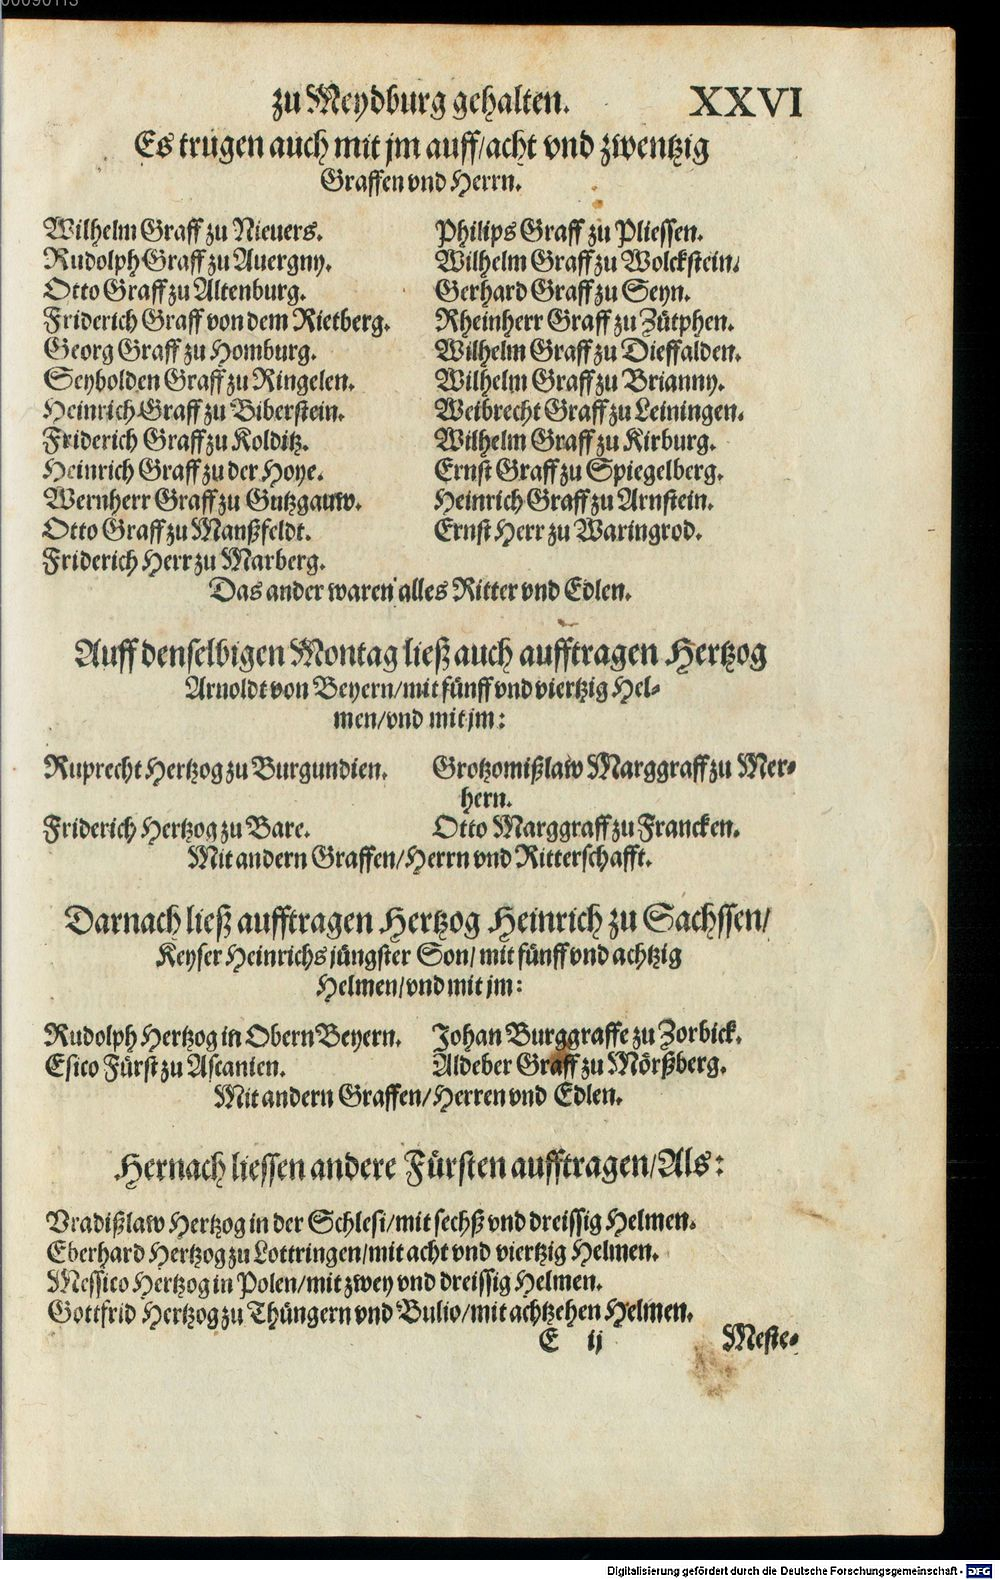 00090113
zu Meydburg gehalten. XXVI
Es trugen auch mit jm auff/acht vnd zwentzig
Graffen vnd Herrn.
Wilhelm Graff zu Nieuers.
Rudolph Graff zu Auergny.
Otto Graff zu Altenburg.
Friderich Graff von dem Rietberg.
Georg Graff zu Homburg.
Seybolden Graff zu Ringelen.
Heinrich Graff zu Biberstein.
Friderich Graff zu Kolditz.
Heinrich Graff zu der Hoye.
Wernherr Graff zu Gutzgauw.
Otto Graff zu Manßfeldt.
Friderich Herr zu Marberg.
Philips Graff zu Pliessen.
Wilhelm Graff zu Wolckstein.
Gerhard Graff zu Seyn.
Rheinherr Graff zu Zütphen.
Wilhelm Graff zu Dieffalden.
Wilhelm Graff zu Brianny.
Weibrecht Graff zu Leiningen.
Wilhelm Graff zu Kirburg.
Ernst Graff zu Spiegelberg.
Heinrich Graff zu Arnstein.
Ernst Herr zu Waringrod.
Das ander waren alles Ritter vnd Edlen.
Auff denselbigen Montag ließ auch aufftragen Hertzog
Arnoldt von Beyern/mit fünff vnd viertzig Hel-
men/vnd mit jm:
Ruprecht Hertzog zu Burgundien.
Friderich Hertzog zu Bare.
Grotzomißlaw Marggraff zu Mer-
hern.
Otto Marggraff zu Francken.
Mit andern Graffen/Herrn vnd Ritterschafft.
Darnach ließ aufftragen Hertzog Heinrich zu Sachssen/
Keyser Heinrichs jüngster Son/mit fünff vnd achtzig
Helmen/vnd mit jm:
Rudolph Hertzog in Obern Beyern.
Esico Fürst zu Ascanien.
Johan Burggraffe zu Zorbick.
Aldeber Graff zu Mörßberg.
Mit andern Graffen/Herren vnd Edlen.
Hernach liessen andere Fürsten aufftragen/Als:
Vradißlaw Hertzog in der Schlesi/mit sechß vnd dreissig Helmen.
Eberhard Hertzog zu Lottringen/mit acht vnd viertzig Helmen.
Messico Hertzog in Polen/mit zwey vnd dreissig Helmen.
Gottfrid Hertzog zu Thüngern vnd Bulio/mit achtzehen Helmen.
E ij Meste-
Digitalisierung gefördert durch die Deutsche Forschungsgemeinschaft - DFG